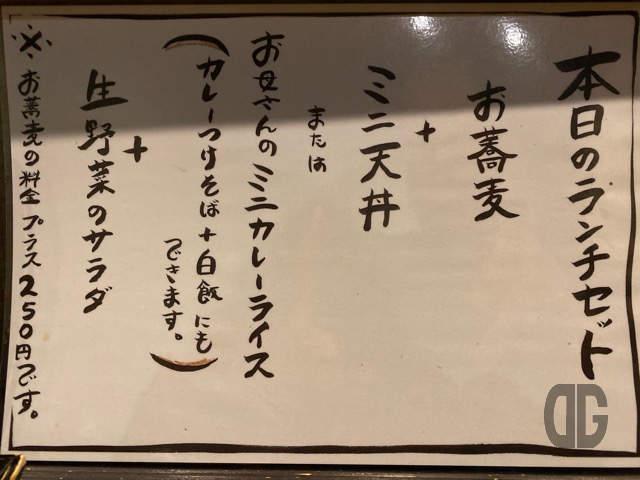 本日のランチセット
お蕎麦
+
ミニ天丼
または
お母さんのミニカレーライス
(カレーつけそば+白飯にも
できます。)
+
生野菜のサラダ
※お蕎麦の料金プラス250円です。
DG